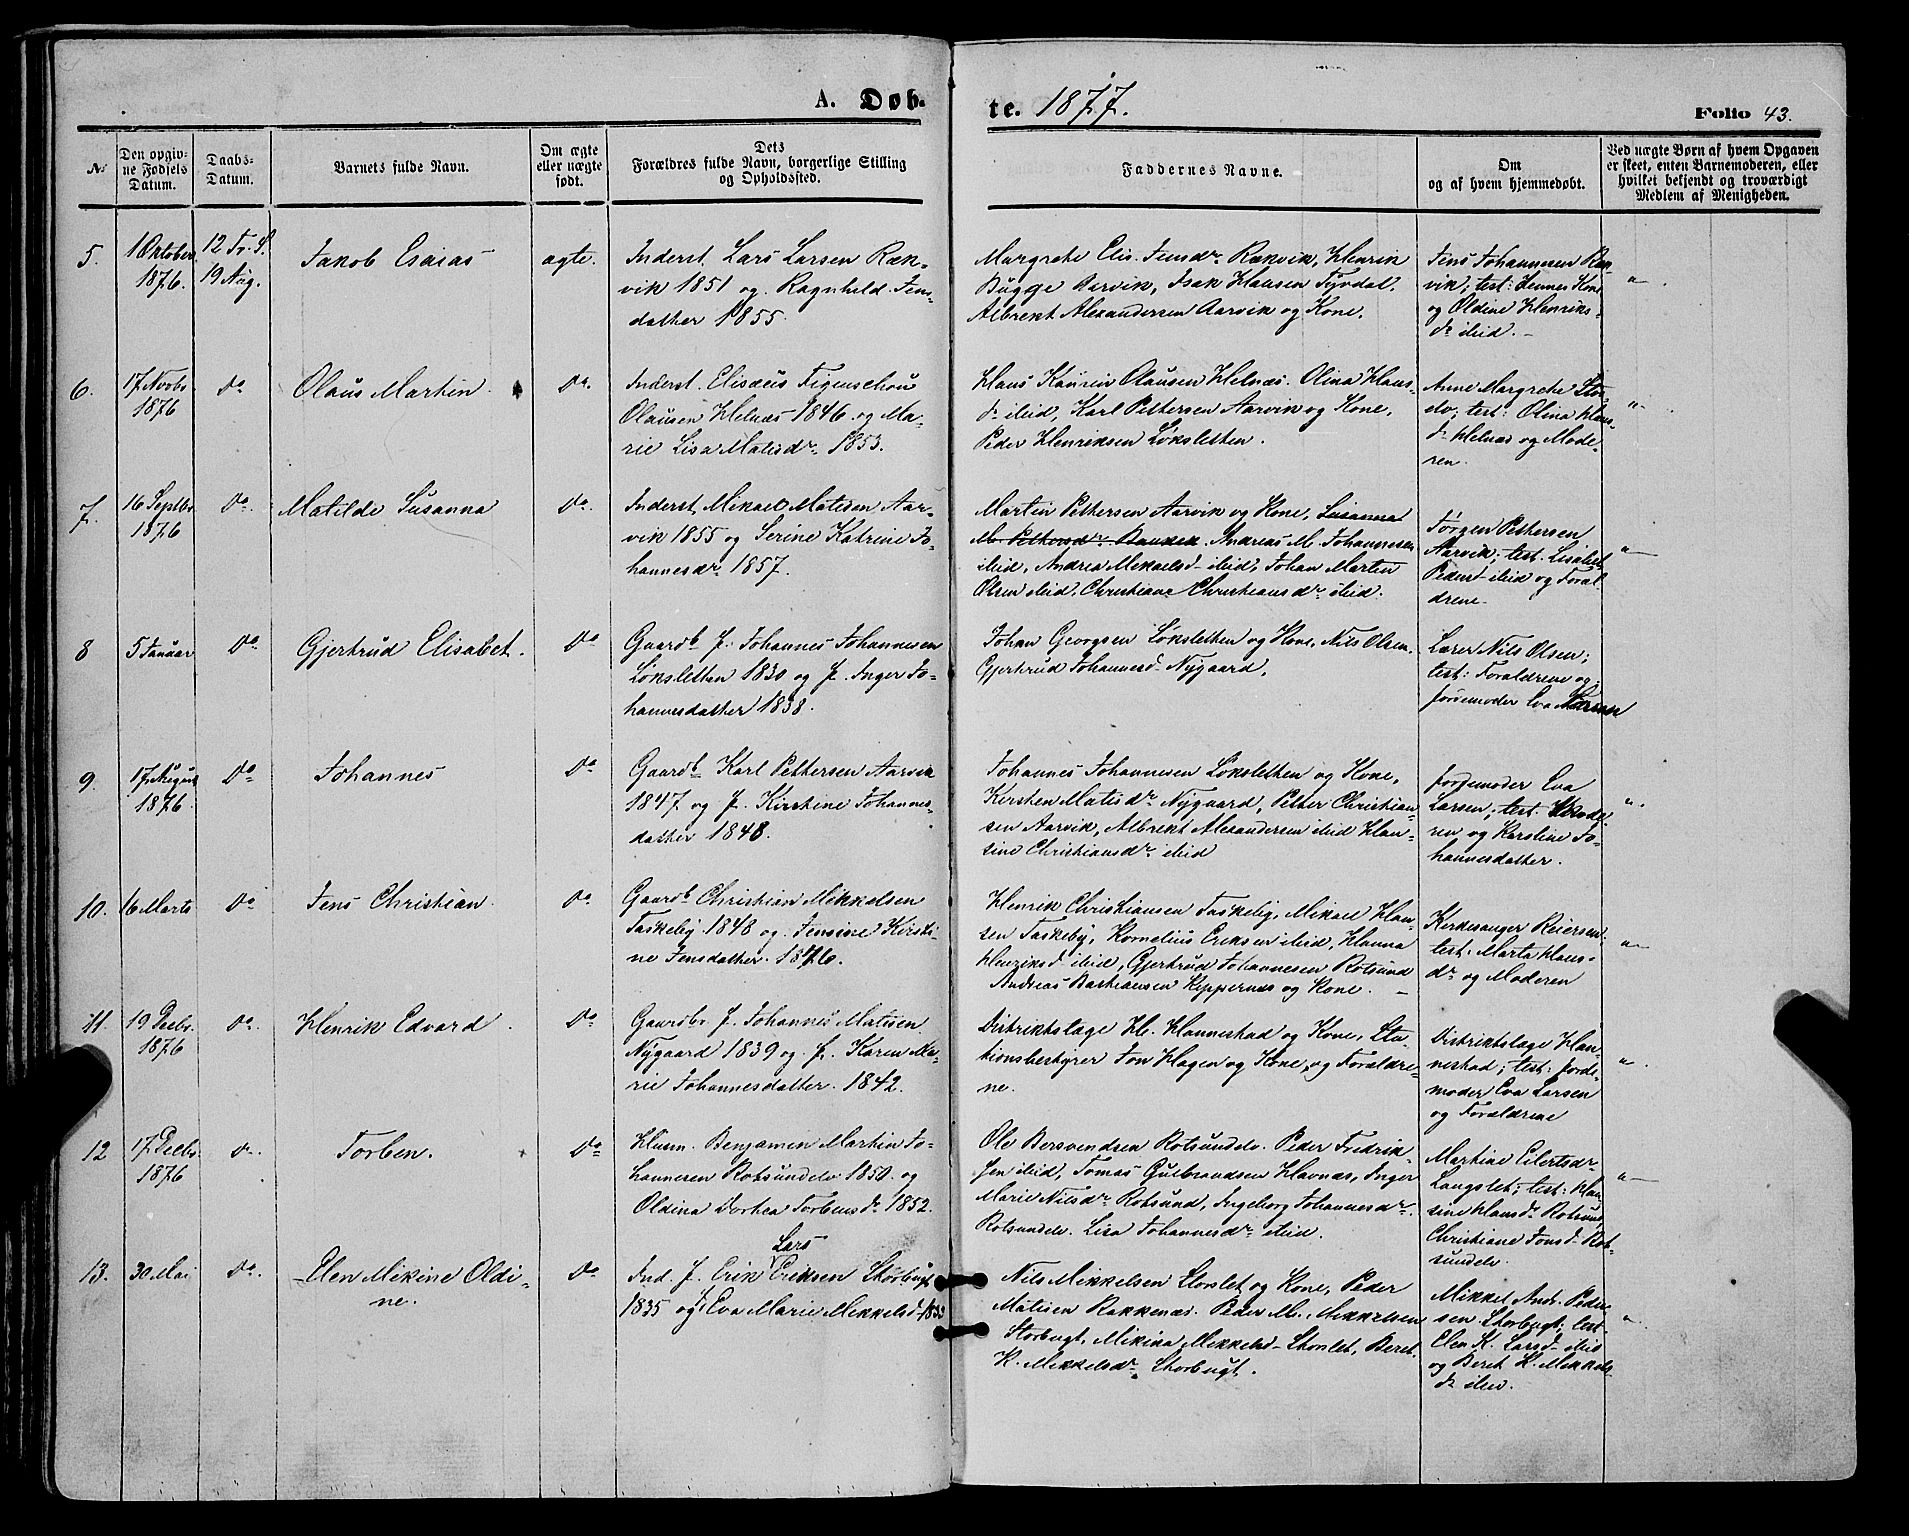 A. Døb-
te. 1877.
Folio 43.
No
Den opgiv-
ne Fødsels
Datum.
Daabs-
Datum.
Barnets fulde Navn.
Om ægte
eller uægte
født.
Dets
Forældres fulde Navn, borgerlige Stilling
og Opholdssted.
Faddernes Navne.
Om
og af hvem hjemmedøbt.
Ved uægte Børn af hvem Opgaven
er skeet, enten Barnemoderen, eller
hvilket bekjendt og troværdigt
Medlem af Menigheden.
5.
1 Oktober
1876.
12 Tr. S.
19 Aug.
Jakob Esaias
ægte.
Inderst. Lars Larsen Ræk-
vik 1851 og Ragnhild Jens-
datter 1855.
Margrete Elis. Jensdr Rækvik, Henrik
Bugge Aarvik, Isak Hansen Fyrdal,
Albrekt Alexandersen Aarvik og Kone.
Jens Johannesen Ræk-
vik; test: Hennes Kone
og Oldine Henriks-
dr ibid. -
"
6.
17 Novbr
1876
Do
Olaus Martin.
Do.
Inderst. Elisæus Figenschou
Olausen Helnæs 1846 og Ma-
rie Lisa Matisdr. 1853.
Hans Kaurin Olausen Helnæs. Olina Hans-
dr ibid, Karl Pettersen Aarvik og Kone,
Peder Henriksen Løksletten.
Anne Margrete Stor-
; test: Olina Hans-
dr Helnæs og Mode-
ren.
"
7.
16 Septbr
1876
Do.
Matilde Susanna
Do.
Inderst. Mikael Matisen Aar-
vik 1855 og Serine Katrine Jo-
hannesdr 1857.
Martin Pettersen Aarvik og Kone, Susanna
M. Pettersdr. Andreas M. Johannesen
ibid, Andrea Mikaelsd ibid, Johan Martin
Olsen ibid, Christiane Christiansdr ibid.
Jørgen Pettersen
Aarvik; test. Lisabet
Pedersd ibid og Foræl-
drene.
"
8
5 Januar
Do
Gjertrud Elisabet.
Do
Gaardb. J. Johannes Johannesen
Løksletten 1830 og J. Inger Jo-
hannesdatter 1838.
Johan Georgsen Løksletten og Kone, Nils Olsen,
Gjertrud Johannesd. Nygaard.
Lærer Nils Olsen;
test: Forældrene og
Jordemoder Eva Larsen
9.
17 August
1876.
Do
Johannes
Do
Gaardb Karl Pettersen Aarvik
1847 og J. Kirstine Johannes-
datter 1848.
Johannes Johannesen Løksletten og Kone,
Kirsten Matisdr. Nygaard, Petter Christian-
sen Aarvik, Albrekt Alexandersen ibid Han-
sine Christiansdr ibid
Jordemoder Eva
Larsen; test. Mode-
ren og Karoline Jo-
hannesdatter.
"
10.
16 Marts
Do
Jens Christian.
Do
Gaardb. Christian Mikkelsen
Taskeby 1848 og Jensine Kirsti-
ne Jensdatter. 1846.
Henrik Christiansen Taskeby, Mikael Han-
sen Taskeby, Kornelius Eriksen ibid, Hanna
Henriksd ibid, Gjertrud Johannesen Rotsund
Andreas Bastiansen Keppernæs og Kone. -
Kirkesanger Reiersen.
test. Marta Hans-
dr og Moderen
"
11.
19 Decbr.
1876
Do.
Henrik Edvard.
Do
Gaardbr. J. Johannes Matisen
Nygaard 1839 og J. Karen Ma-
rie Johannesdatter. 1842.
Distriktslæge H. Hannestad og Kone, Sta-
tionsbestyrer Jon Hagen og Kone, og Forældre-
ne.
Distriktslæge Han-
nestad; test: Jorde-
moder Eva Larsen
og Forældrene
"
12
17 Decbr.
1876
Do.
Torben.
Do
Husm. Benjamin Martin Jo-
hannesen Rotsundelv 1850 og
Oldina Dorthea Torbensdr 1852.
Ole Bersvendsen Rotsundelv. Peder Fredrik-
sen ibid, Tomas Gulbrandsen Havnæs, Inger
Marie Nilsdr Rotsund, Ingeborg Johannesdr.
Rotsundelv. Lisa Johannesdr ibid.
Martine Eilertsdr
Langslet; test: Han-
sine Hansdr Rotsund
Christiane Jonsd. Rot-
sundelv.
"
13.
30 Mai
Do.
Elen Mikine Oldi-
ne.
Do
Ind. J. Erik Lars Eriksen Storbugt
1835 og J. Eva Marie Mikkelsd. 1832
Nils Mikkelsen Storslet og Kone, Peder
Matisen Rakkenæs. Peder M. Mikkelsen
Storbugt, Mikina Mikkelsd Storslet, Beret
K. Mikkelsdr. Storbugt.
Mikkel Andr. Peder-
sen Storbugt; test-
Elen K. Larsd ibid
og Beret K. Mikkels-
dr ibid.
"